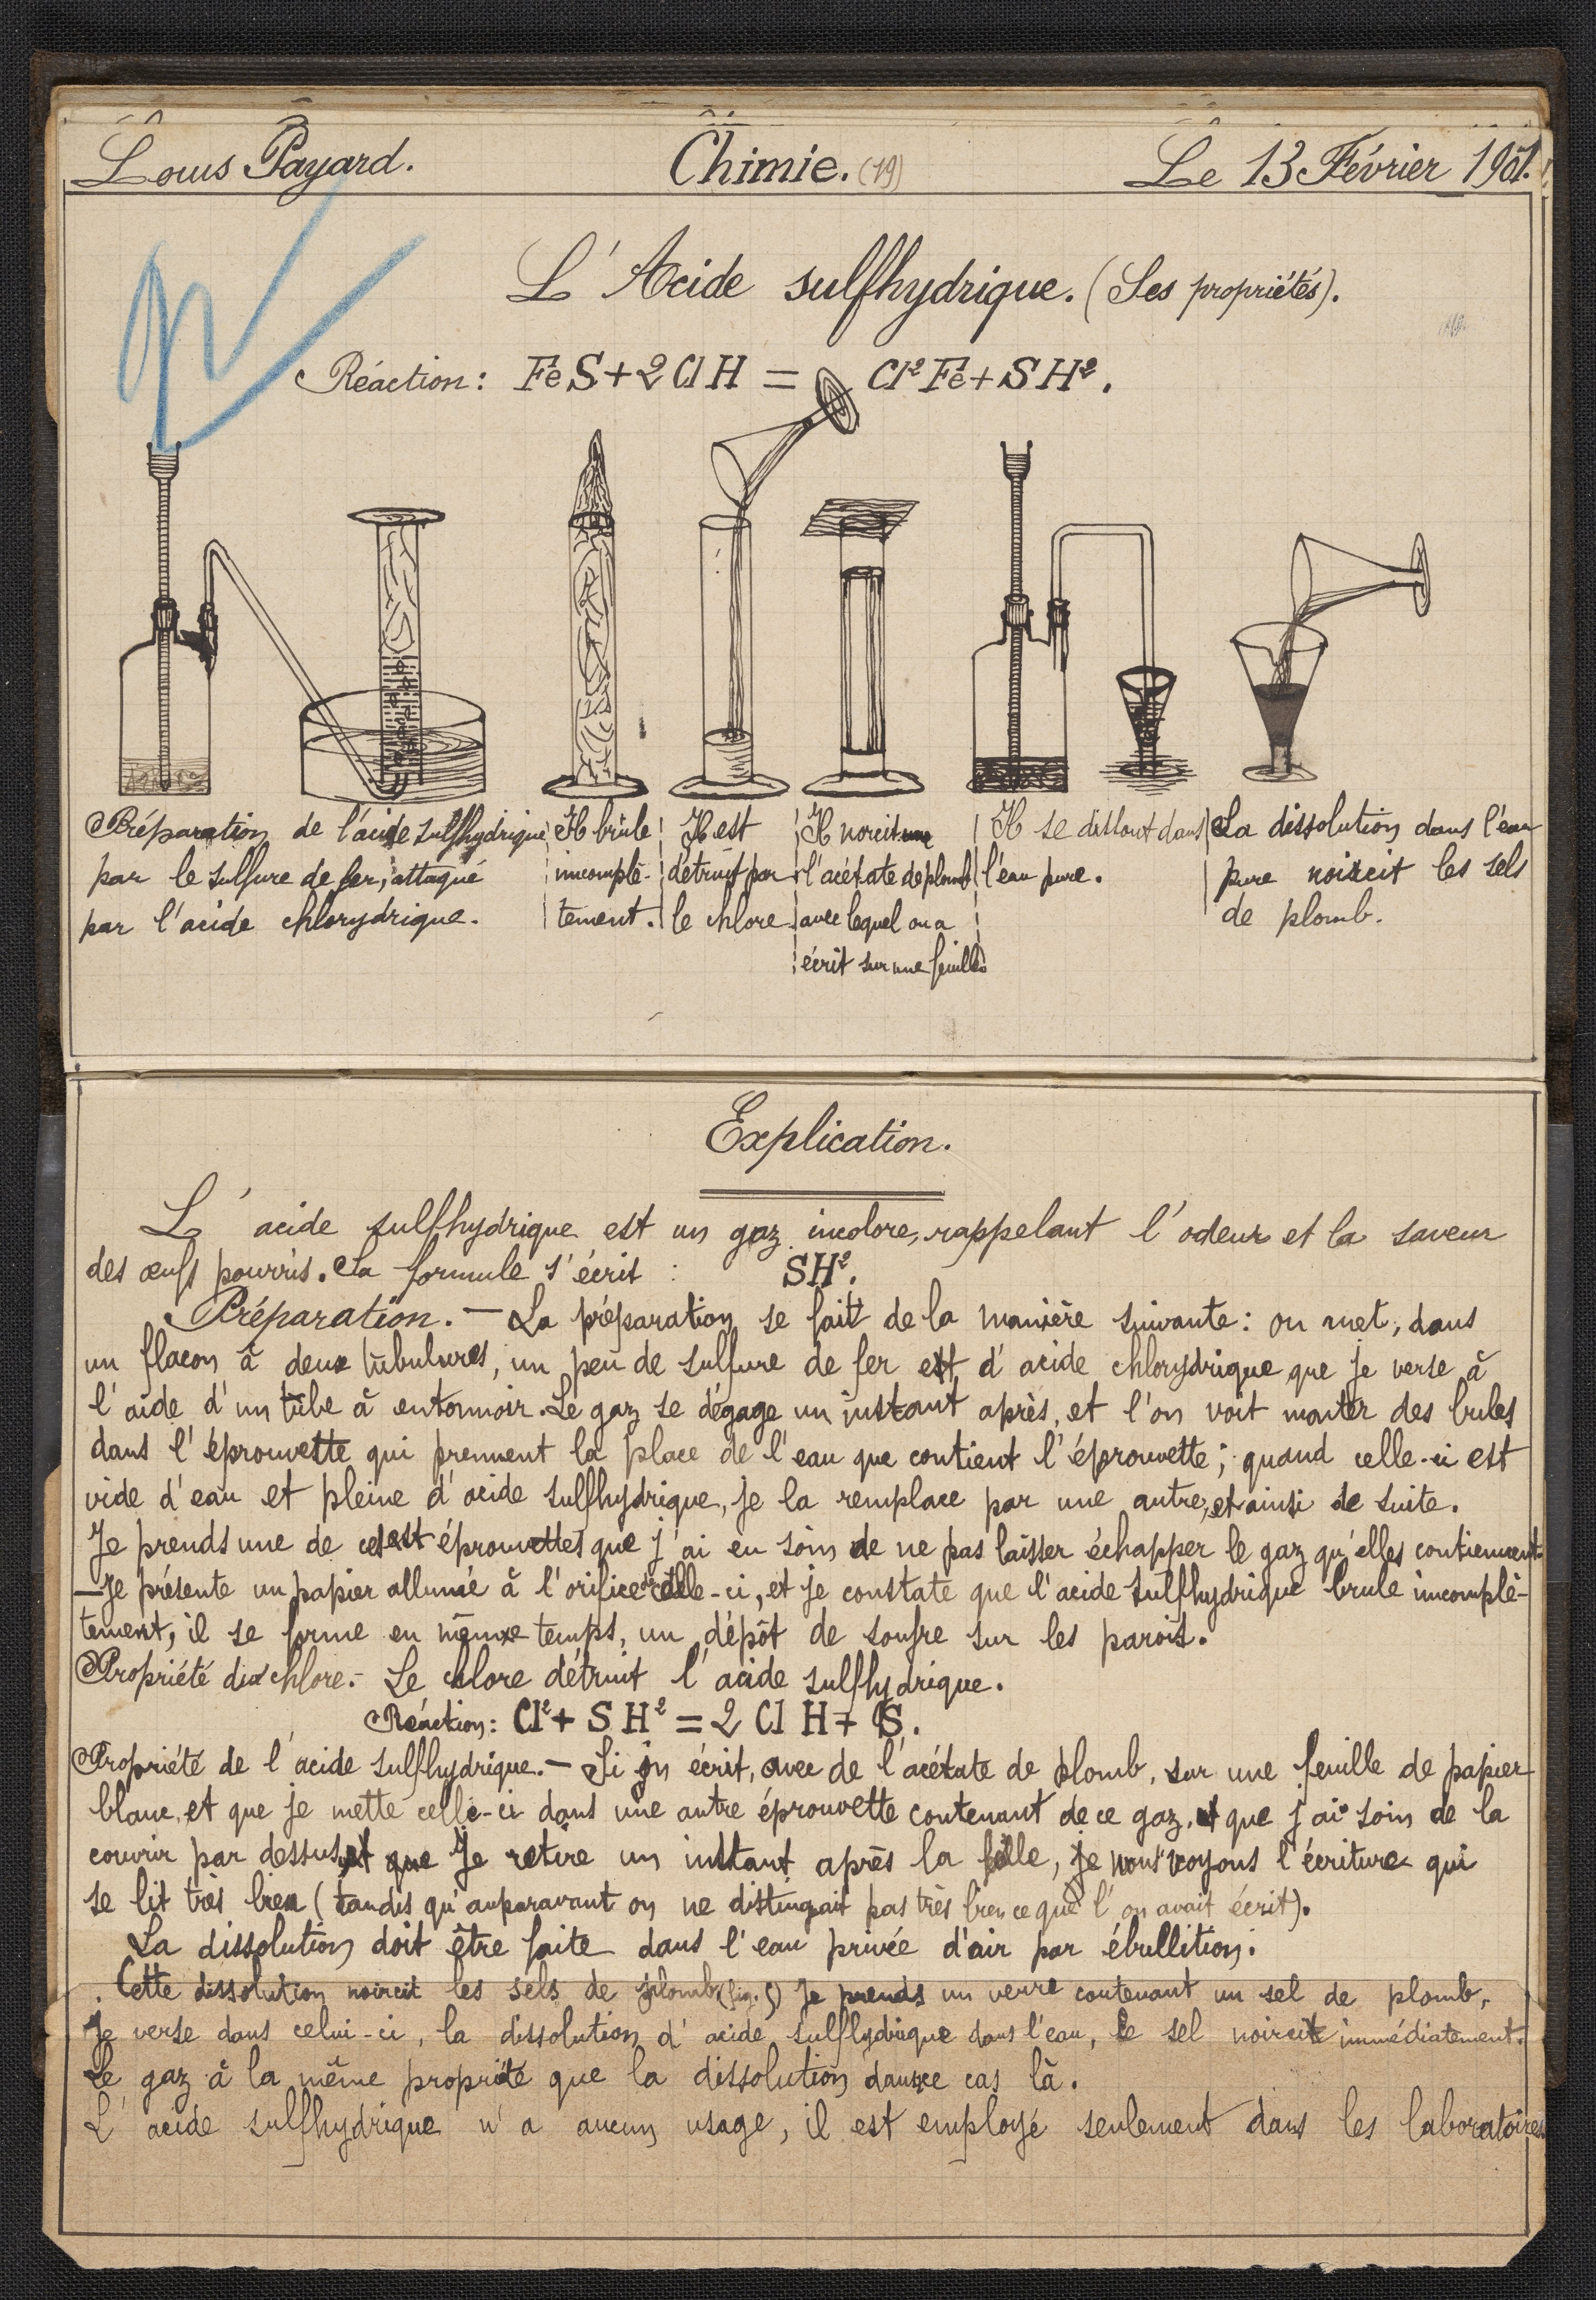 Louis Payard. Chimie. (19) Le 13 Février 1901.
L'Acide sulfhydrique. (Ses propriétés).
Réaction: FeS + 2 Cl H = Cl² Fe + S H².
Préparation de l'acide sulfhydrique
par le sulfure de fer, attaqué
par l'acide chlorydrique.
Il brûle
incomplè-
tement.
Il est
détruit par
le chlore
Il noircit
l'acétate de plomb
avec lequel on a
écrit sur une feuille
Il se dissout dans
l'eau pure.
La dissolution dans l'eau
pure noircit les sels
de plomb.
Explication.
L'acide sulfhydrique est un gaz incolore, rappelant l'odeur et la saveur
des œufs pourris. Sa formule s'écrit : SH².
Préparation. — La préparation se fait de la manière suivante: on met, dans
un flacon à deux tubulures, un peu de sulfure de fer et d'acide chlorydrique que je verse à
l'aide d'un tube à entonnoir. Le gaz se dégage un instant après, et l'on voit monter des bules
dans l'éprouvette qui prennent la place de l'eau que contient l'éprouvette; quand celle-ci est
vide d'eau et pleine d'acide sulfhydrique, je la remplace par une autre, et ainsi de suite.
Je prends une de ces éprouvettes que j'ai eu soin de ne pas laisser échapper le gaz qu'elles contiennent
— Je présente un papier allumé à l'orifice de celle-ci, et je constate que l'acide sulfhydrique brule incomplè-
tement, il se forme en même temps, un dépôt de soufre sur les parois.
Propriété du chlore. - Le chlore détruit l'acide sulfhydrique.
Réaction: Cl² + S H² = 2 Cl H + S.
Propriété de l'acide sulfhydrique. — Si j'en écrit, avec de l'acétate de plomb, sur une feuille de papier
blanc, et que je mette celle-ci dans une autre éprouvette contenant de ce gaz, et que j'ai soin de la
couvrir par dessus, et que je retire un instant après la feuille, nous voyons l'écriture qui
se lit très bien (tandis qu'auparavant on ne distinguait pas très bien ce que l'on avait écrit).
La dissolution doit être faite dans l'eau privée d'air par ébullition.
Cette dissolution noircit les sels de plomb (fig. 5) Je prends un verre contenant un sel de plomb,
Je verse dans celui-ci, la dissolution d'acide sulfhydrique dans l'eau, le sel noircit immédiatement.
Le gaz à la même propriété que la dissolution dans ce cas là.
L'acide sulfhydrique n'a aucun usage, il est employé seulement dans les laboratoires